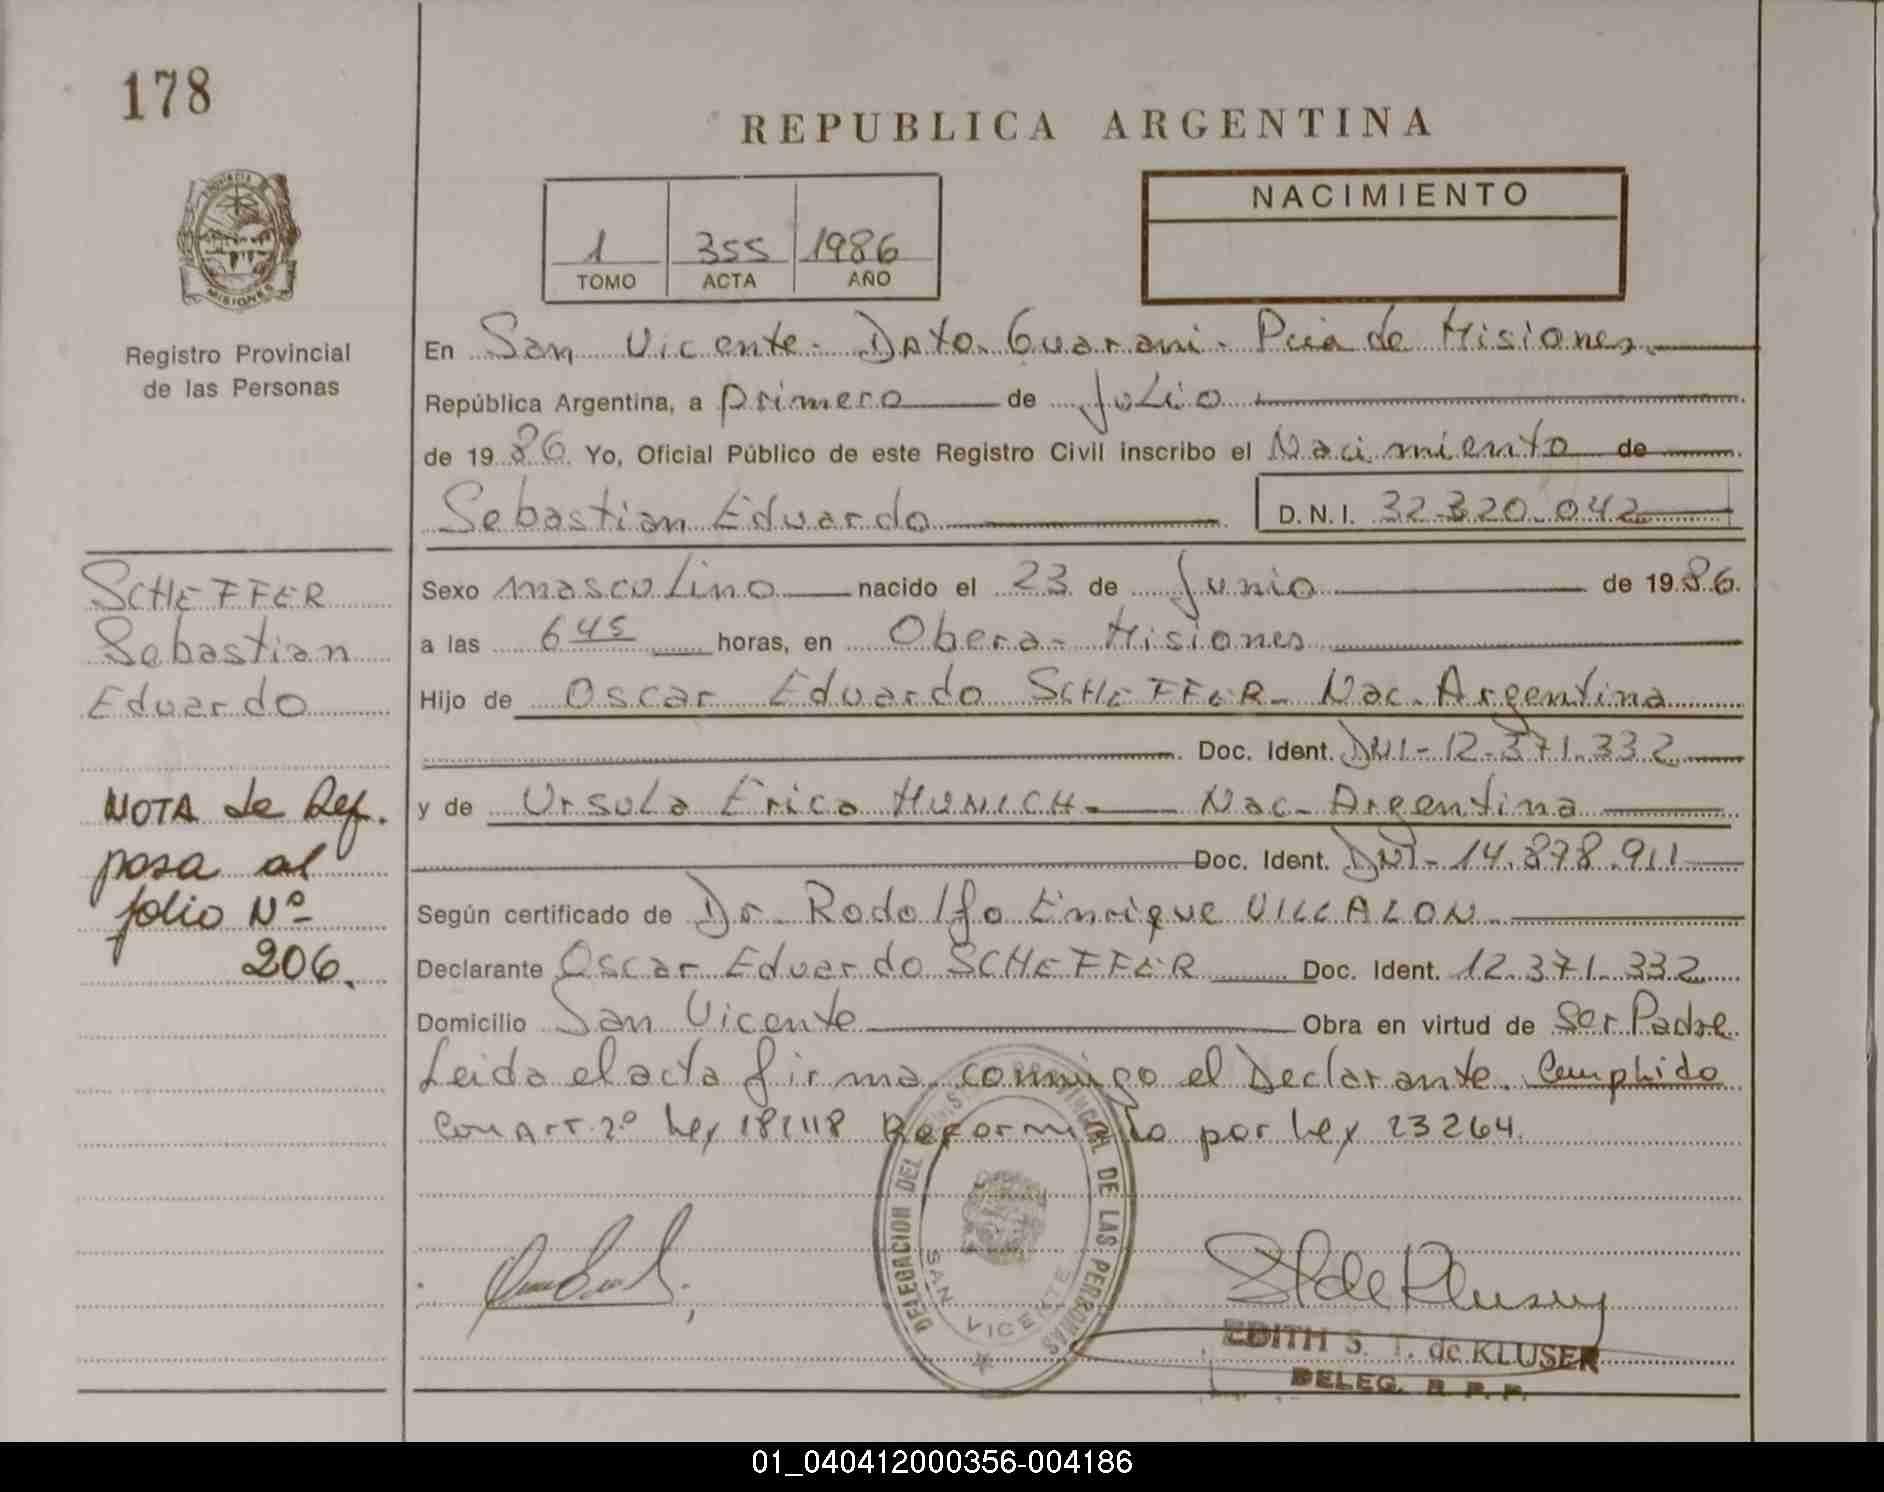 178
REPUBLICA ARGENTINA
PROVINCIA D
MISIONES
Registro Provincial
de las Personas
1 355 1986
TOMO ACTA AÑO
NACIMIENTO
En San Vicente - Dpto. Guarani - Pcia de Misiones.
República Argentina, a primero de Julio
de 19 86. Yo, Oficial Público de este Registro Civil inscribo el Nacimiento de
Sebastian Eduardo D.N.I. 32.320.042
SCHEFFER
Sebastian
Eduardo
NOTA de Ref.
pasa al
folio Nº
206.
Sexo masculino nacido el 23 de Junio de 19 86.
a las 6 45 horas, en Obera - Misiones
Hijo de Oscar Eduardo SCHEFFER - Nac. Argentina
Doc. Ident. DNI - 12.371.332
y de Ursula Erica HUNICH - Nac - Argentina
Doc. Ident. DNI - 14.878.911
Según certificado de Dr. Rodolfo Enrique VILLALON
Declarante Oscar Eduardo SCHEFFER Doc. Ident. 12.371.332
Domicilio San Vicente Obra en virtud de Ser Padre
Leida el acta firma conmigo el Declarante. Cumplido
con Art 2º Ley 18248 Reformado por Ley 23264.
DELEGACION DEL REGISTRO PROVINCIAL DE LAS PERSONAS
SAN VICENTE
EDITH S. T. de KLUSER
DELEG. R. P. P.
01_040412000356-004186